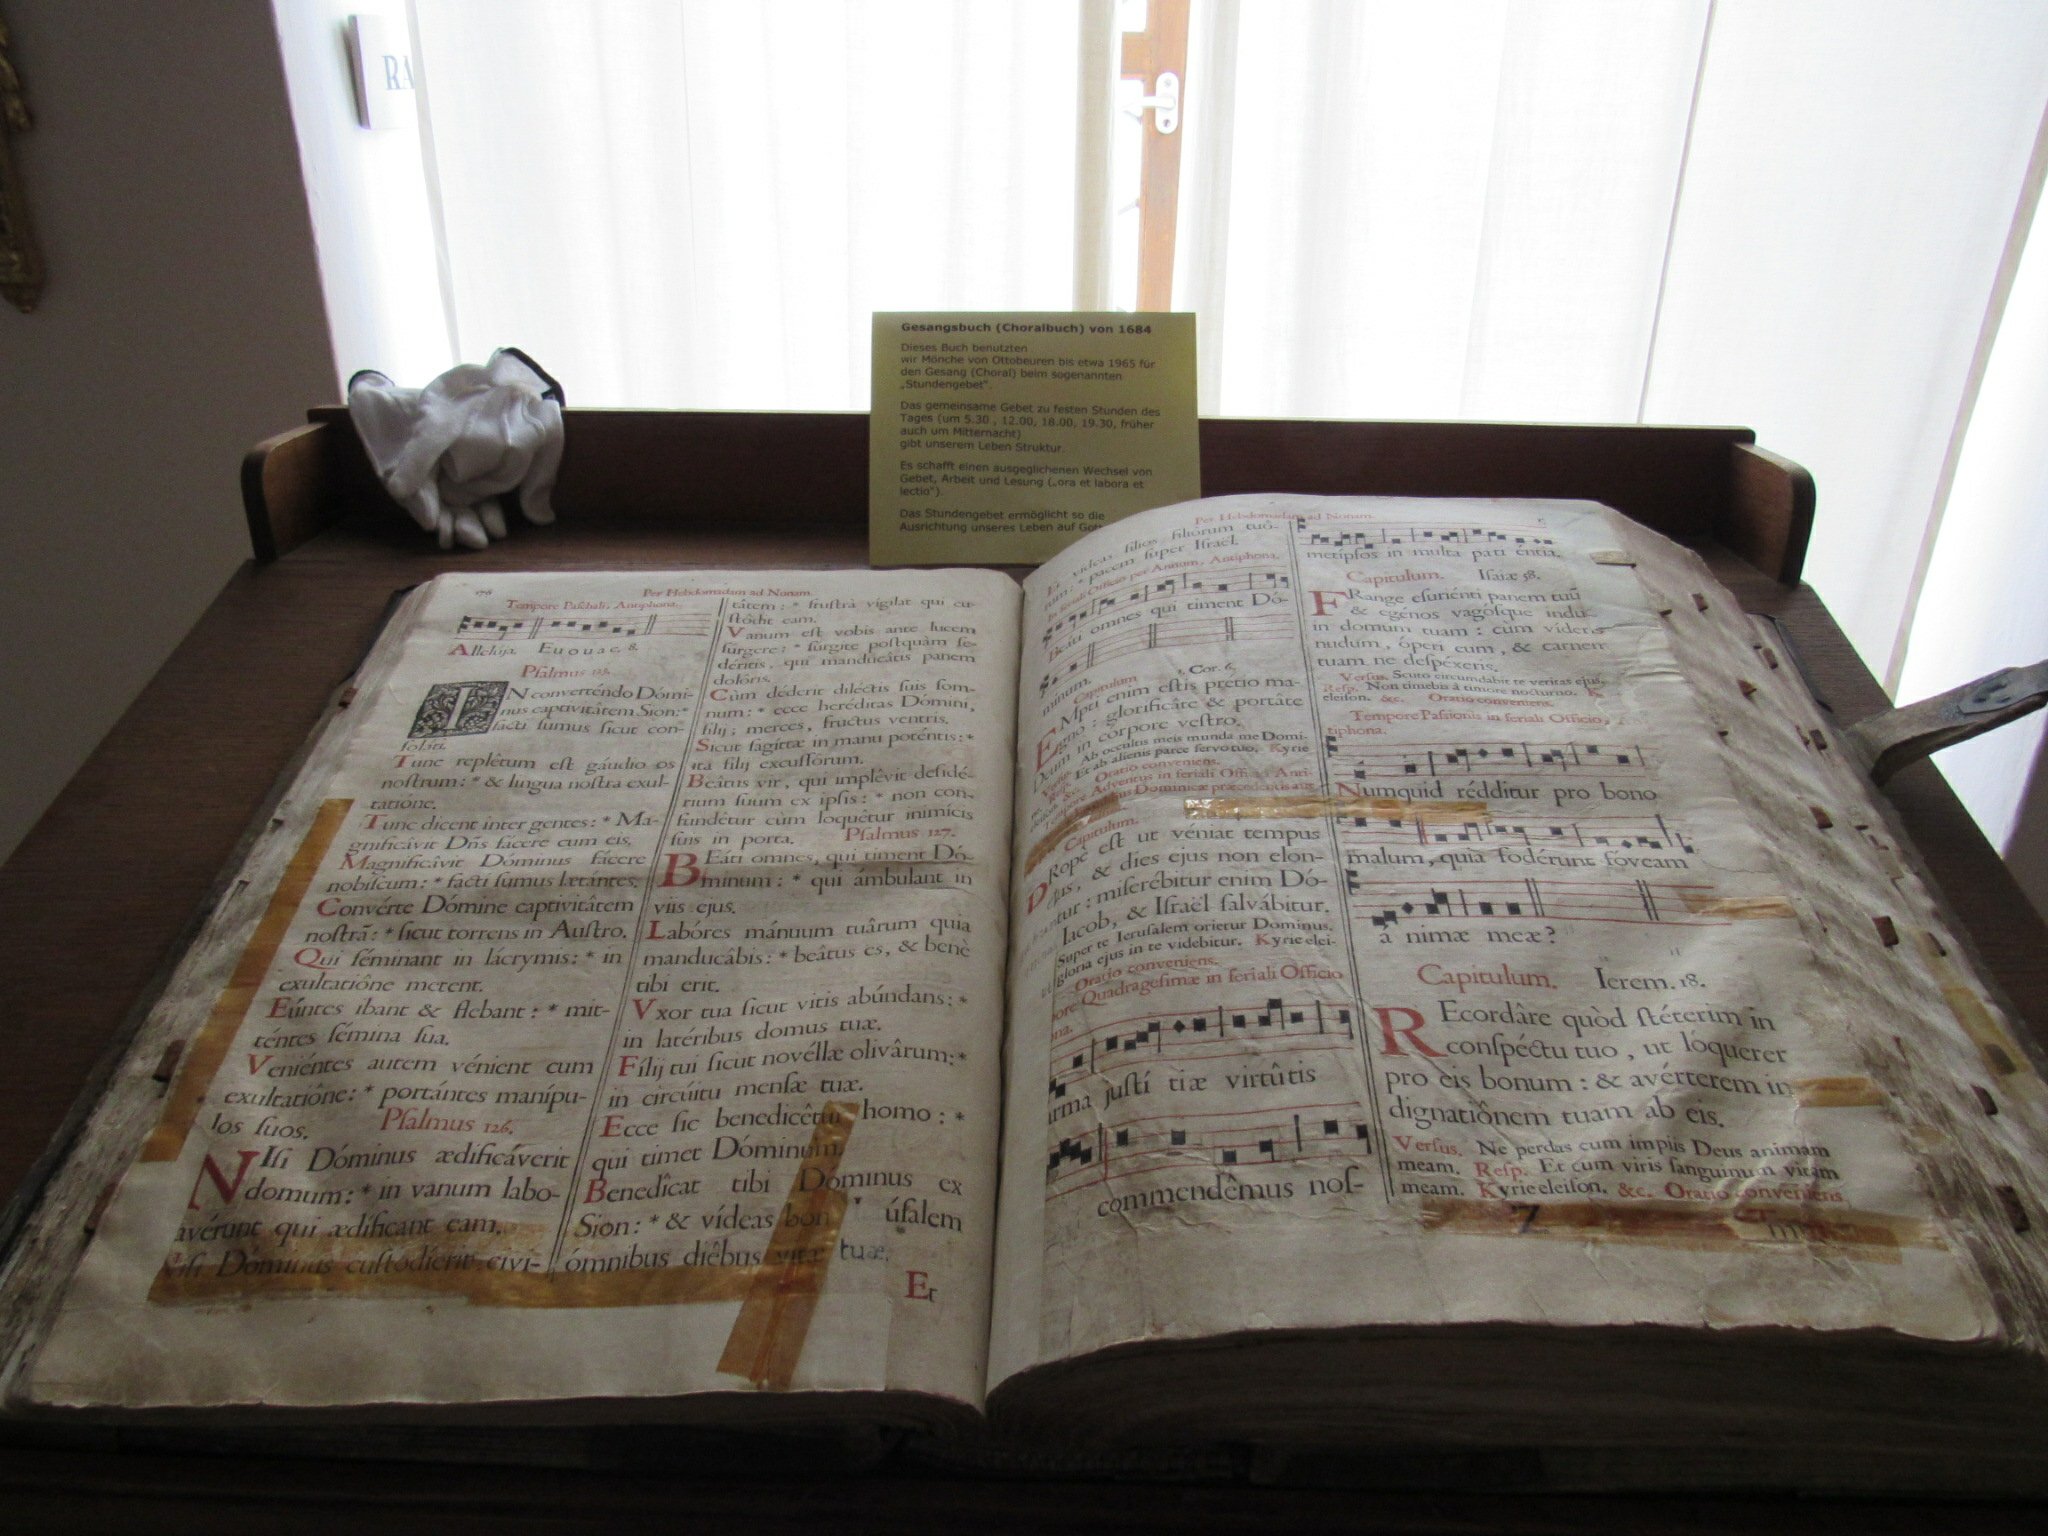 RA
Gesangsbuch (Choralbuch) von 1684
Dieses Buch benutzten
wir Mönche von Ottobeuren bis etwa 1965 für
den Gesang (Choral) beim sogenannten
„Stundengebet".
Das gemeinsame Gebet zu festen Stunden des
Tages (um 5.30 , 12.00, 18.00, 19.30, früher
auch um Mitternacht)
gibt unserem Leben Struktur.
Es schafft einen ausgeglichenen Wechsel von
Gebet, Arbeit und Lesung („ora et labora et
lectio").
Das Stundengebet ermöglicht so die
Ausrichtung unseres Leben auf Gott
176 Per Hebdomadam ad Nonam.
Tempore Paschali, Antiphona.
Allelúja. Euouae. 8.
Psalmus 125.
IN converténdo Dómi-
nus captivitâtem Sion: *
facti sumus sicut con-
soláti.
Tunc replêtum est gáudio os
nostrum: * & lingua nostra exul-
tatione.
Tunc dicent inter gentes: * Ma-
gnificâvit Dñs fácere cum eis.
Magnificâvit Dóminus fácere
nobíscum: * facti sumus lætántes.
Convérte Dómine captivitâtem
nostrã: * sicut torrens in Austro.
Qui séminant in lácrymis: * in
exultatiône metent.
Eúntes ibant & flebant: * mit-
téntes sémina sua.
Veniéntes autem vénient cum
exultatiône: * portántes manípu-
los suos. Psalmus 126.
NIsi Dóminus ædificáverit
domum: * in vanum labo-
avérunt qui ædíficant eam.
Nisi Dóminus custodíerit civi-
tâtem: * frustrà vígilat qui cu-
stôdit eam.
Vanum est vobis ante lucem
súrgere: * súrgite postquàm se-
déritis, qui manducâtis panem
dolôris.
Cùm déderit diléctis suis som-
num: * ecce heréditas Dómini,
filij; merces, fructus ventris.
Sicut sagíttæ in manu poténtis: *
ità filij excussôrum.
Beâtus vir, qui implêvit desidé-
rium suum ex ipsis: * non con-
fundétur cùm loquétur inimícis
suis in porta. Psalmus 127.
BEáti omnes, qui timent Dó-
minum: * qui ámbulant in
viis ejus.
Labóres mánuum tuârum quia
manducâbis: * beâtus es, & benè
tibi erit.
Vxor tua sicut vitis abúndans: *
in latéribus domus tuæ.
Fílij tui sicut novéllæ olivârum: *
in circúitu mensæ tuæ.
Ecce sic benedicêtur homo: *
qui timet Dóminum.
Benedîcat tibi Dominus ex
Sion: * & vídeas bon úsalem
ómnibus diêbus vitæ tuæ.
Et
Per Hebdomadam ad Nonam.
Et vídeas filios filiórum tuô-
rum: * pacem super Israël.
In feriali Officio per Annum, Antiphona.
Beáti omnes qui timent Dó-
minum.
Capitulum 1. Cor. 6.
EMpti enim estis pretio ma-
gno: glorificâte & portâte
Deum in córpore vestro.
Versus. Ab occultis meis munda me Domi-
Resp. Et ab alienis parce servo tuo. Kyrie
eleison &c. Oratio conveniens.
Tempore Adventus in feriali Officio Anti-
Dominicæ præcedentis
Capitulum.
PRopè est ut véniat tempus
ejus, & dies ejus non elon-
tur: miserébitur enim Dó-
Iacob, & Israël salvábitur.
Super te Ierusalem orietur Dominus.
gloria ejus in te videbitur. Kyrie elei-
Oratio conveniens.
ore Quadragesimæ in feriali Officio
na.
arma justí tiæ virtûtis
commendêmus nos-
metípsos in multa pati éntia.
Capitulum. Isaiæ 58.
FRange esuriénti panem tuũ
& egénos vagósque induc
in domum tuam: cùm víderis
nudum, óperi eum, & carnem
tuam ne despéxeris.
Versus. Scuto circumdabit te veritas ejus.
Resp. Non timebis à timore nocturno. K
eleison. &c. Oratio conveniens.
Tempore Passionis in feriali Officio,
tiphona.
Numquid rédditur pro bono
malum, quia fodérunt fóveam
á nimæ meæ?
Capitulum. Ierem. 18.
REcordâre quòd stéterim in
conspéctu tuo, ut lóquerer
pro eis bonum: & avérterem in
dignatiônem tuam ab eis.
Versus. Ne perdas cum impiis Deus animam
meam. Resp. Et cum viris sanguinum vitam
meam. Kyrie eleison. &c. Oratio conveniens
Z